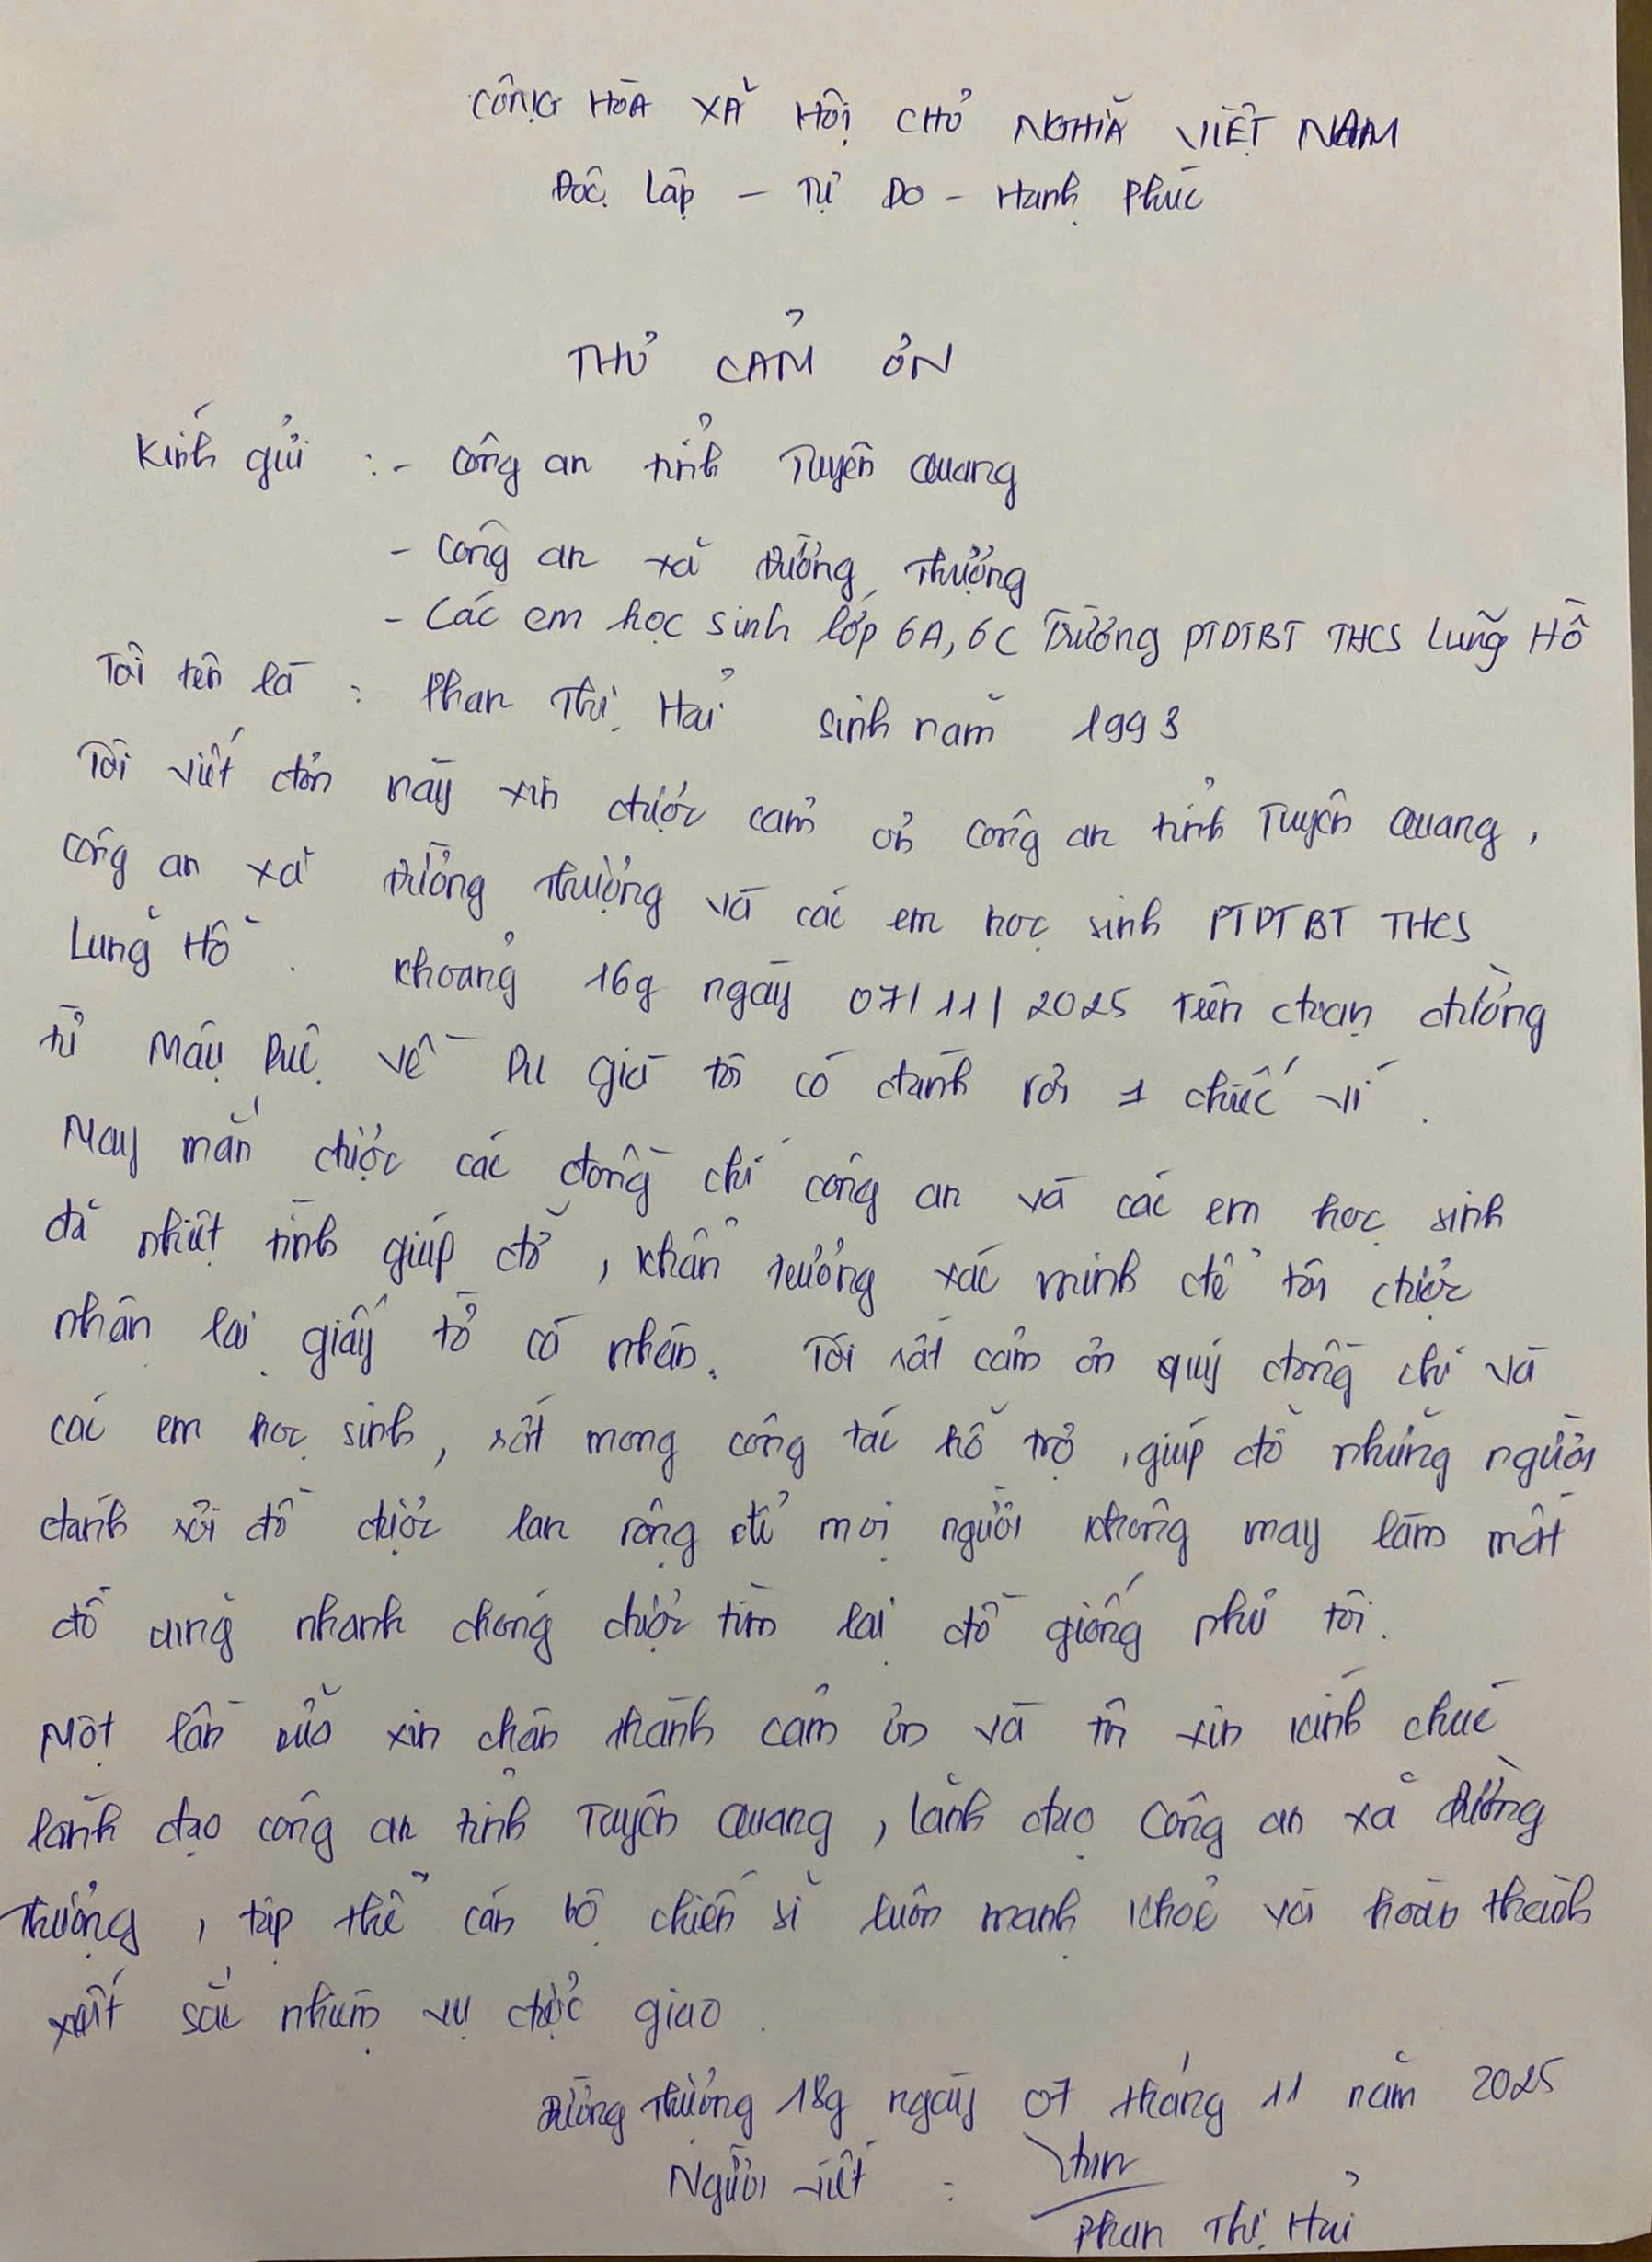 CỘNG HÒA XÃ HỘI CHỦ NGHĨA VIỆT NAM
Độc Lập - Tự Do - Hạnh Phúc
THƯ CẢM ƠN
Kính gửi : - Công an tỉnh Tuyên Quang
- Công an xã Đường Thượng
- Các em học sinh lớp 6A, 6C Trường PTDTBT THCS Lũng Hồ
Tôi tên là : Phan Thị Hải sinh năm 1993
Tôi viết đơn này xin được cảm ơn công an tỉnh Tuyên Quang,
công an xã Đường Thượng và các em học sinh PTDTBT THCS
Lũng Hồ. Khoảng 16g ngày 07/11/2025 trên đoạn đường
từ Mậu Duệ về Du già tôi có đánh rơi 1 chiếc ví.
May mắn được các đồng chí công an và các em học sinh
đã nhiệt tình giúp đỡ, khẩn trương xác minh để tôi được
nhận lại giấy tờ cá nhân. Tôi rất cảm ơn quý đồng chí và
các em học sinh, rất mong công tác hỗ trợ, giúp đỡ những người
đánh rơi đồ được lan rộng để mọi người không may làm mất
đồ cũng nhanh chóng được tìm lại đồ giống như tôi.
Một lần nữa xin chân thành cảm ơn và tôi xin kính chúc
lãnh đạo công an tỉnh Tuyên Quang, lãnh đạo Công an xã Đường
Thượng, tập thể cán bộ chiến sĩ luôn mạnh khoẻ và hoàn thành
xuất sắc nhiệm vụ được giao.
Đường Thượng 18g ngày 07 tháng 11 năm 2025
Người viết :
Phan Thị Hải